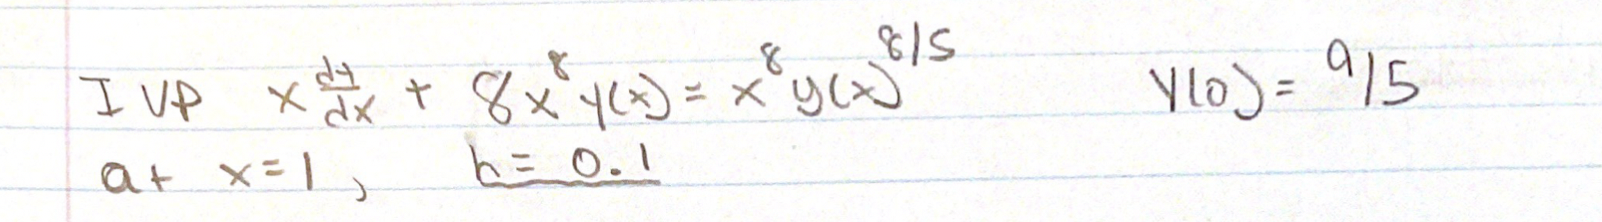 IVP x dy/dx + 8x^8 y(x) = x^8 y(x)^8/5 y(0) = 9/5
at x=1, h=0.1